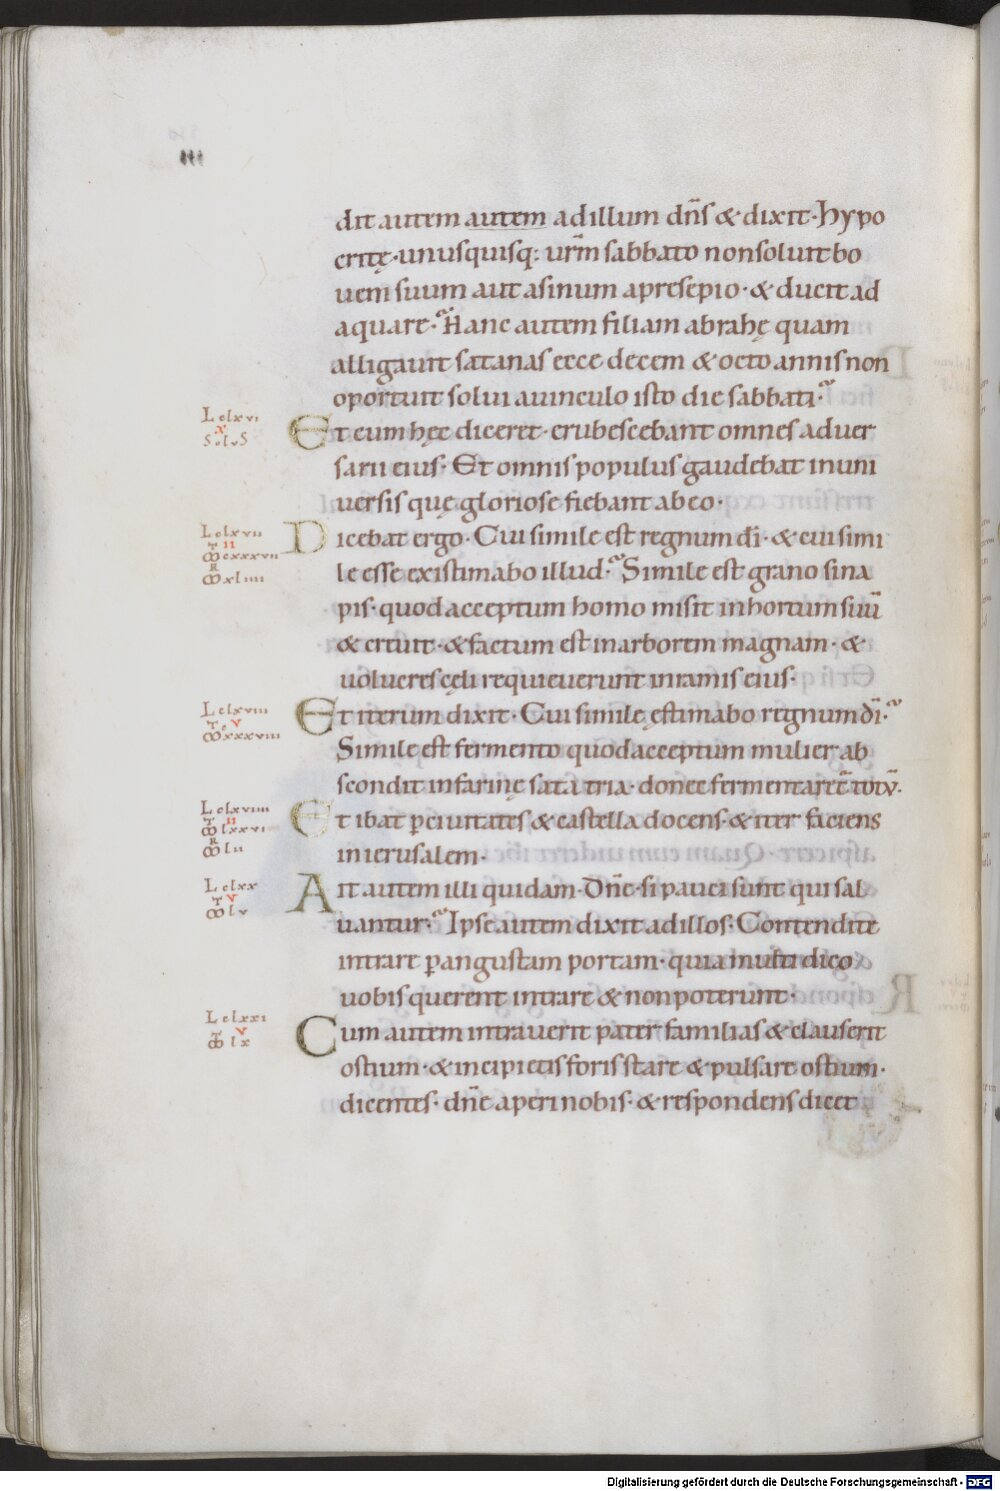 dit autem autem ad illum dñs & dixit· Hypo
critę· unusquisq: urm̃ sabbato non soluit bo
uem suum aut asinum a presepio· & ducit ad
aquare· Hanc autem filiam abrahę quam
alligauit satanas ecce decem & octo annis non
oportuit solui a uinculo isto die sabbati·
L clxvi
x
SolvS
Et cum hęc diceret· erubescebant omnes aduer
sarii eius· Et omnis populus gaudebat in uni
uersis quę gloriose fiebant ab eo·
L clxvii
T II
M cxxxvii
R
M xliiii
Dicebat ergo· Cui simile est regnum dī· & cui simi
le esse existimabo illud· Simile est grano sina
pis· quod acceptum homo misit in hortum suū
& creuit· & factum est in arborem magnam· &
uolucres cęli requieuerunt in ramis eius·
L clxviii
T V
M cxxxviii
Et iterum dixit· Cui simile ęstimabo regnum dī·
Simile est fermento quod acceptum mulier ab
scondit in farinę sata tria· donec fermentaret totū·
L clxviiii
T II
M lxxvi
R
M lii
Et ibat p̄ ciuitates & castella docens· & iter faciens
in ierusalem·
L clxx
T V
M lv
Ait autem illi quidam· Dñe· si pauci sunt qui sal
uantur· Ipse autem dixit ad illos· Contendite
intrare p̄ angustam portam· quia multi dico
uobis querent intrare & non poterunt·
L clxxi
T V
M lx
Cum autem intrauerit pater familias & clauserit
ostium· & incipietis foris stare & pulsare ostium·
dicentes· dñe aperi nobis· & respondens dicet
Digitalisierung gefördert durch die Deutsche Forschungsgemeinschaft - DFG